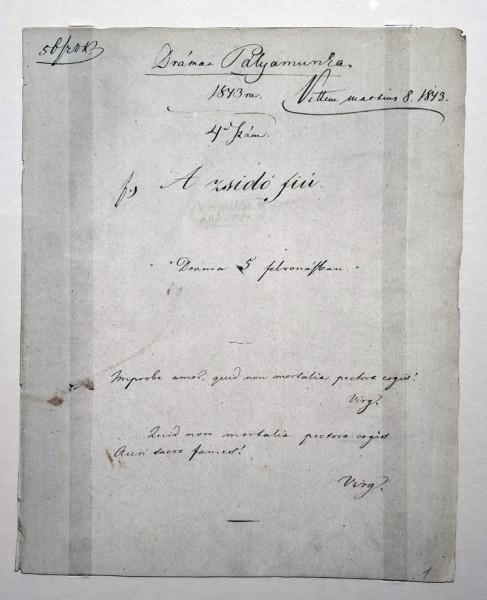 Drámai Pályamunka.
1843ra.
Vettem martius 8. 1843.
4d szám.
A zsidó fiú.
Dráma 5 felvonásban.
Improbe amor, quid non mortalia pectora cogis!
Virg.
.... Quid non mortalia pectora cogis
Auri sacra fames!
Virg.
1